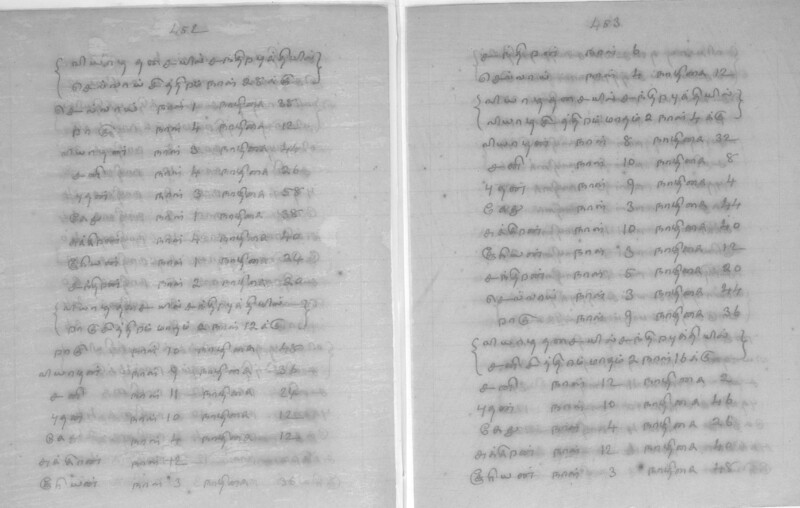 452
{ வியாழ தசையில் சந்திரபுத்தியில்
செவ்வாய் சித்திரம் நாள் 28க்கு }
செவ்வாய் நாள் 1 நாழிகை 38
ராகு நாள் 4 நாழிகை 12
வியாழன் நாள் 3 நாழிகை 44
சனி நாள் 4 நாழிகை 26
புதன் நாள் 3 நாழிகை 58
கேது நாள் 1 நாழிகை 38
சுக்கிரன் நாள் 4 நாழிகை 40
சூரியன் நாள் 1 நாழிகை 24
சந்திரன் நாள் 2 நாழிகை 20
{ வியாழ தசையில் சந்திரபுத்தியில்
ராகு சித்திரம் மாதம் 2 நாள் 12க்கு }
ராகு நாள் 10 நாழிகை 48
வியாழன் நாள் 9 நாழிகை 36
சனி நாள் 11 நாழிகை 24
புதன் நாள் 10 நாழிகை 12
கேது நாள் 4 நாழிகை 12
சுக்கிரன் நாள் 12
சூரியன் நாள் 3 நாழிகை 36
453
சந்திரன் நாள் 6
செவ்வாய் நாள் 4 நாழிகை 12
{ வியாழ தசையில் சந்திரபுத்தியில்
வியாழ சித்திரம் மாதம் 2 நாள் 4க்கு }
வியாழன் நாள் 8 நாழிகை 32
சனி நாள் 10 நாழிகை 8
புதன் நாள் 9 நாழிகை 4
கேது நாள் 3 நாழிகை 44
சுக்கிரன் நாள் 10 நாழிகை 40
சூரியன் நாள் 3 நாழிகை 12
சந்திரன் நாள் 5 நாழிகை 20
செவ்வாய் நாள் 3 நாழிகை 44
ராகு நாள் 9 நாழிகை 36
{ வியாழ தசையில் சந்திரபுத்தியில்
சனி சித்திரம் மாதம் 2 நாள் 16க்கு }
சனி நாள் 12 நாழிகை 2
புதன் நாள் 10 நாழிகை 46
கேது நாள் 4 நாழிகை 26
சுக்கிரன் நாள் 12 நாழிகை 40
சூரியன் நாள் 3 நாழிகை 48